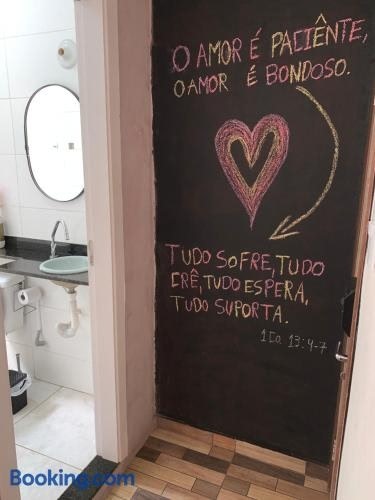 O AMOR É PACIÊNTE,
O AMOR É BONDOSO.
TUDO SOFRE, TUDO
CRÊ, TUDO ESPERA,
TUDO SUPORTA.
1 Co. 13:4-7
Booking.com